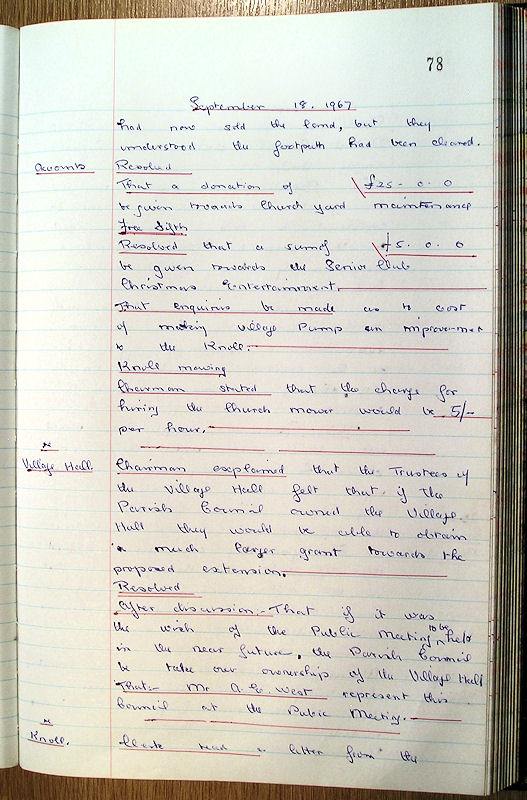 78
September 18. 1967
had now sold the land, but they
understood the footpath had been cleared.
Accounts Resolved
That a donation of £25. 0. 0
be given towards Church yard maintenance
Free Sixth
Resolved that a sum of £5. 0. 0
be given towards the Senior Club
Christmas Entertainment.
That enquiries be made as to cost
of making Village Pump an improvement
to the Knoll.
Knoll mowing
Chairman stated that the charge for
hiring the Church mower would be 5/-
per hour.
Village Hall. Chairman explained that the Trustees of
the Village Hall felt that if the
Parish Council owned the Village
Hall they would be able to obtain
a much larger grant towards the
proposed extension.
Resolved
After discussion:- That if it was
the wish of the Public Meeting to be held
in the near future, the Parish Council
be take over ownership of the Village Hall
That:- Mr A. West represent this
Council at the Public Meeting.
Knoll. Clerk read a letter from the